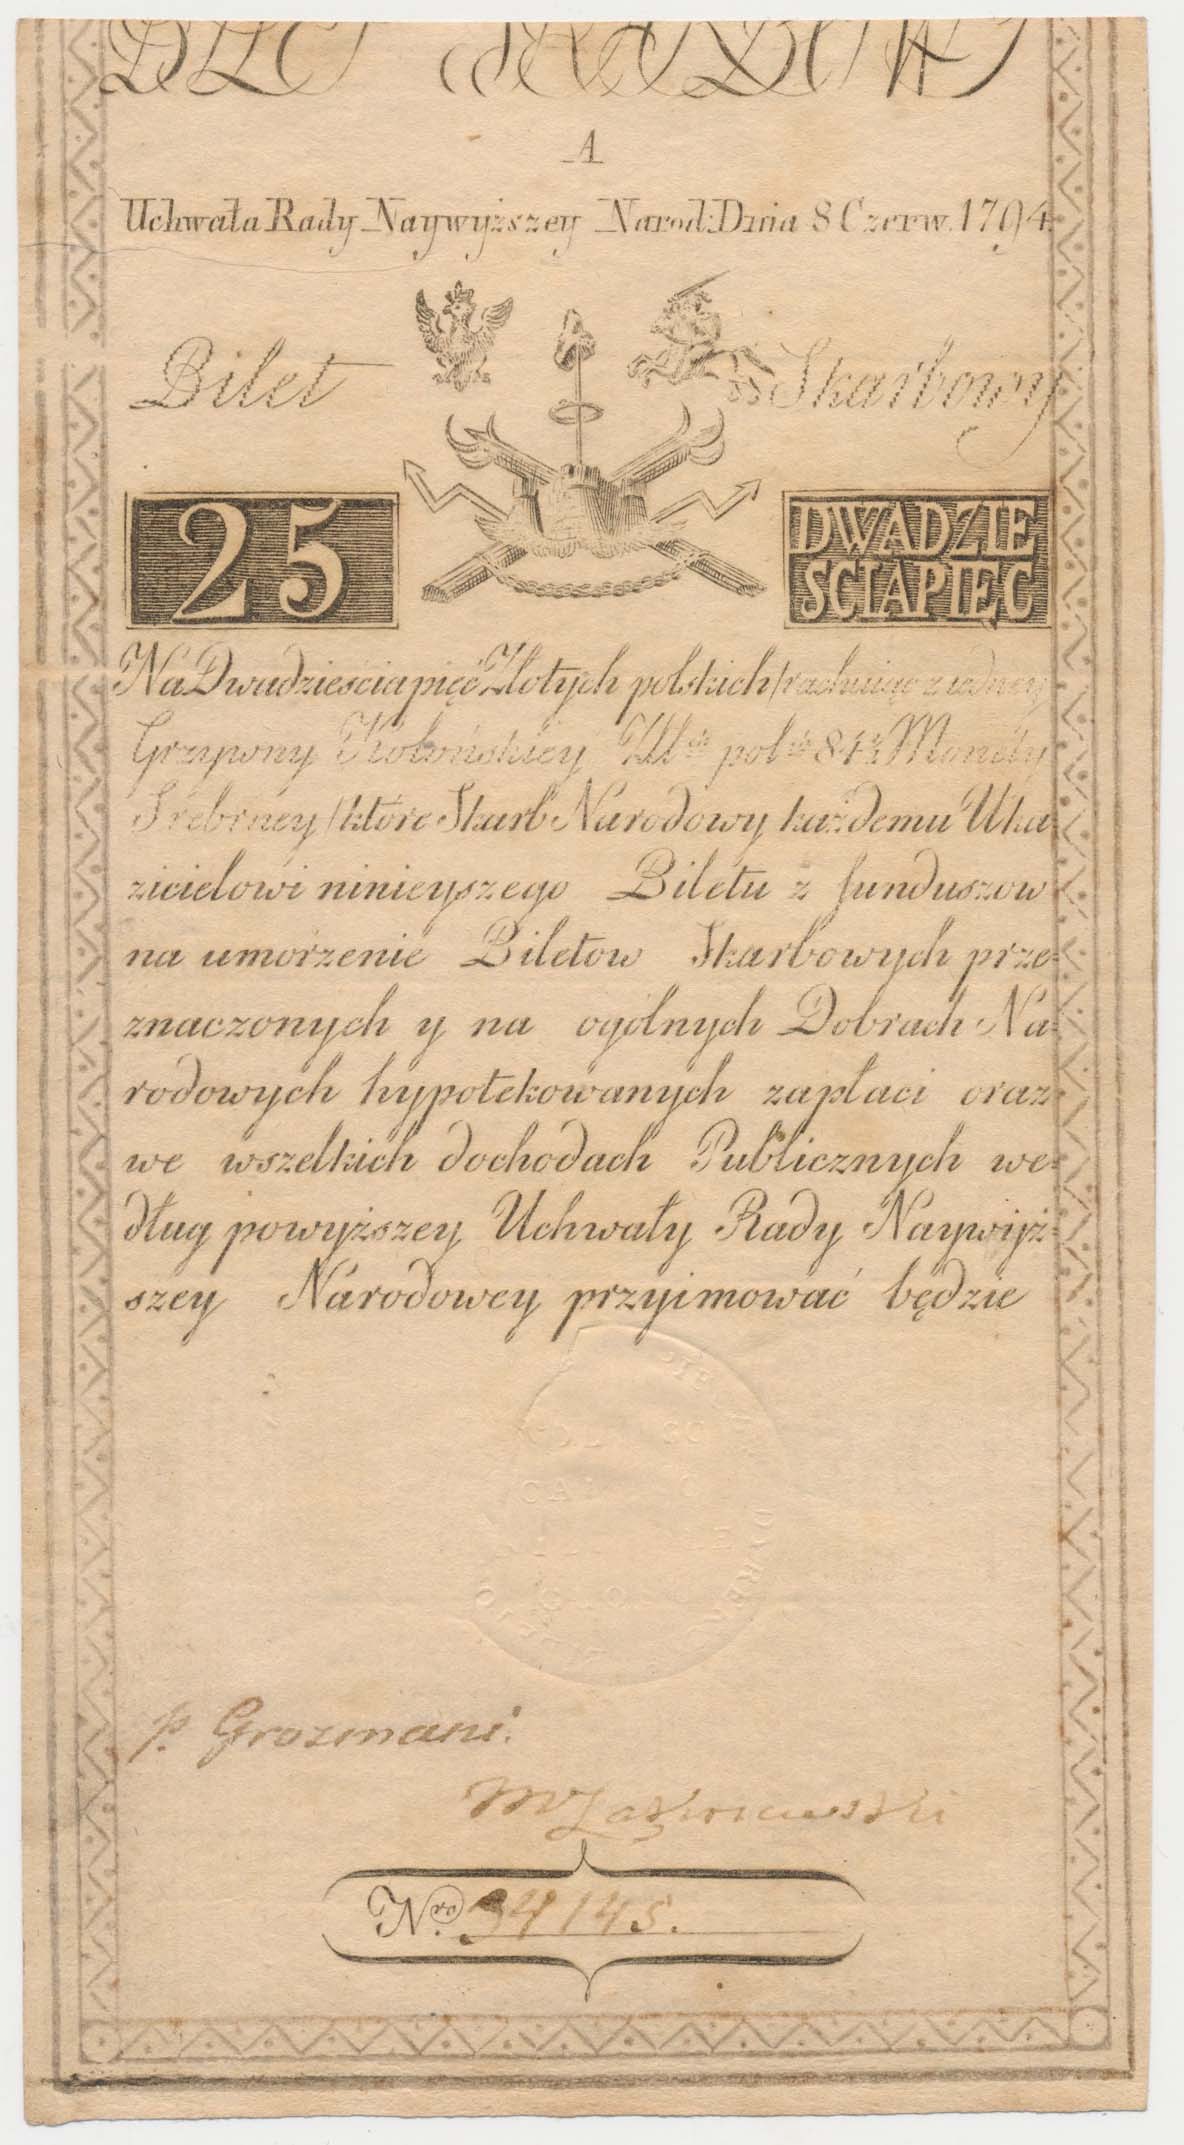 BILET SKARBOWY
A
Uchwała Rady Naywyższey Narod: Dnia 8 Czerw. 1794.
Bilet Skarbowy
25
DWADZIE
SCIAPIĘĆ
Na Dwadzieścia pięć Złotych polskich /rachuiąc z iedney
Grzywny Kolońskiey Złch polch 84½ Monety
Srebrney/ które Skarb Narodowy każdemu Uka
zicielowi ninieyszego Biletu z funduszow
na umorzenie Biletow Skarbowych prze=
znaczonych y na ogólnych Dobrach Na=
rodowych hypotekowanych zapłaci oraz
we wszelkich dochodach Publicznych we=
dług powyższey Uchwały Rady Naywyż=
szey Narodowey przyimować będzie
p. Grozmani.
Nro. 34145.